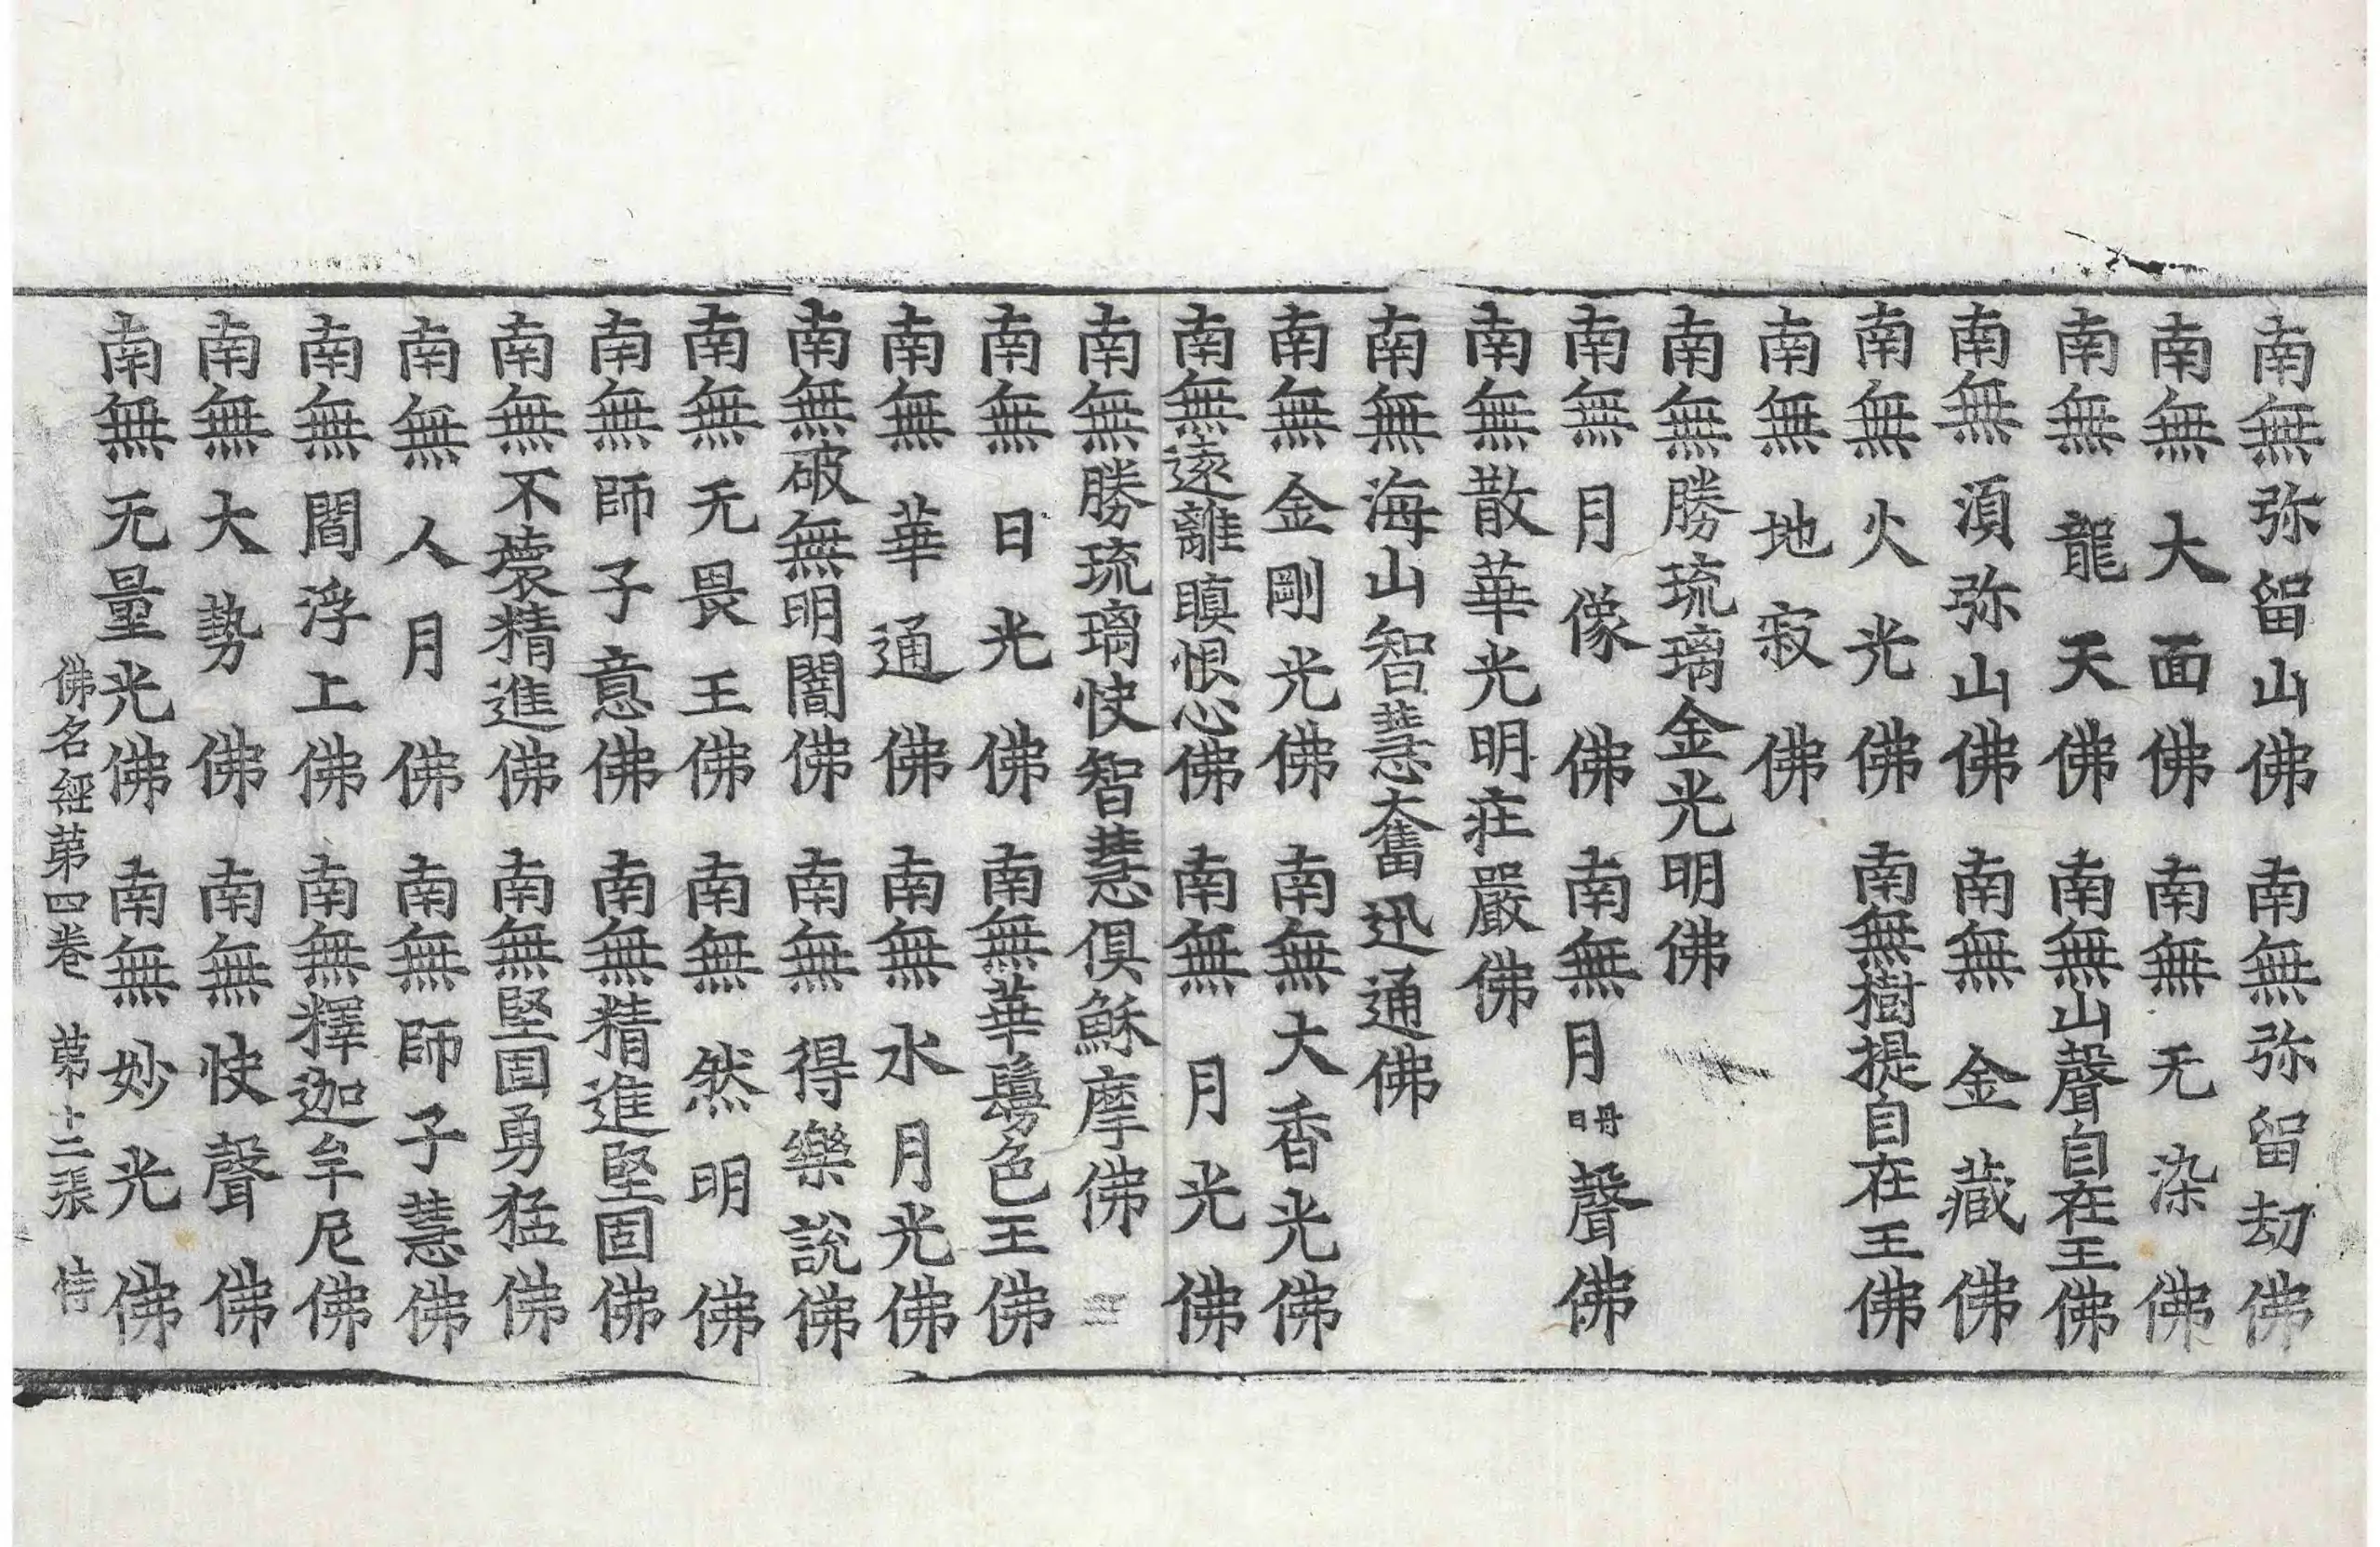 南無弥留山佛 南無弥留劫佛
南無大面佛 南無无染佛
南無龍天佛 南無山聲自在王佛
南無湏弥山佛 南無金藏佛
南無火光佛 南無樹提自在王佛
南無地寂佛
南無勝琉璃金光明佛
南無月像佛 南無月明聲佛
南無散華光明庄嚴佛
南無海山智慧奮迅通佛
南無金剛光佛 南無大香光佛
南無遠離瞋恨心佛 南無月光佛
南無勝琉璃快智慧俱穌摩佛
南無日光佛 南無華鬘色王佛
南無華通佛 南無水月光佛
南無破無明闇佛 南無得樂說佛
南無无畏王佛 南無然明佛
南無師子意佛 南無精進堅固佛
南無不壞精進佛 南無堅固勇猛佛
南無人月佛 南無師子慧佛
南無閻浮上佛 南無釋迦牟尼佛
南無大勢佛 南無快聲佛
南無无量光佛 南無妙光佛
佛名經第四卷 第十二張